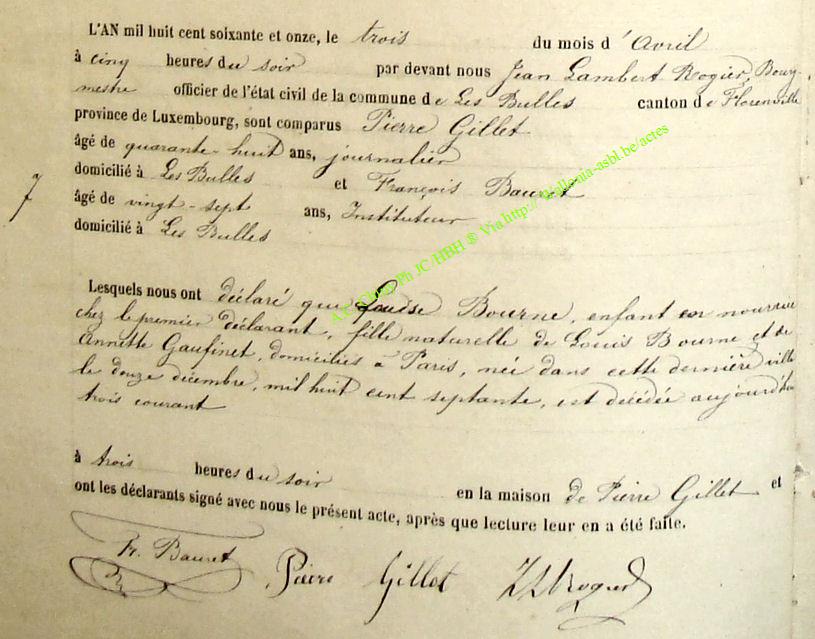 L'AN mil huit cent soixante et onze, le trois du mois d'Avril
à cinq heures du soir par devant nous Jean Lambert Rogier, Bourg-
mestre officier de l'état civil de la commune de Les Bulles canton de Florenville
province de Luxembourg, sont comparus Pierre Gillet
âgé de quarante-huit ans, journalier
domicilié à Les Bulles et François Bauret
7
âgé de vingt-sept ans, Instituteur
domicilié à Les Bulles
Lesquels nous ont déclaré que Louise Bourne, enfant en nourrice
chez le premier déclarant, fille naturelle de Louis Bourne et de
Annette Gaufinet, domiciliés à Paris, née dans cette dernière ville
le douze décembre, mil huit cent septante, est décédée aujourd'hui
trois courant
à trois heures du soir en la maison de Pierre Gillet et
ont les déclarants signé avec nous le présent acte, après que lecture leur en a été faite.
Fr. Bauret Pierre Gillet JLRogier
JC/HBH © Via http:// wallonia-asbl.be/actes